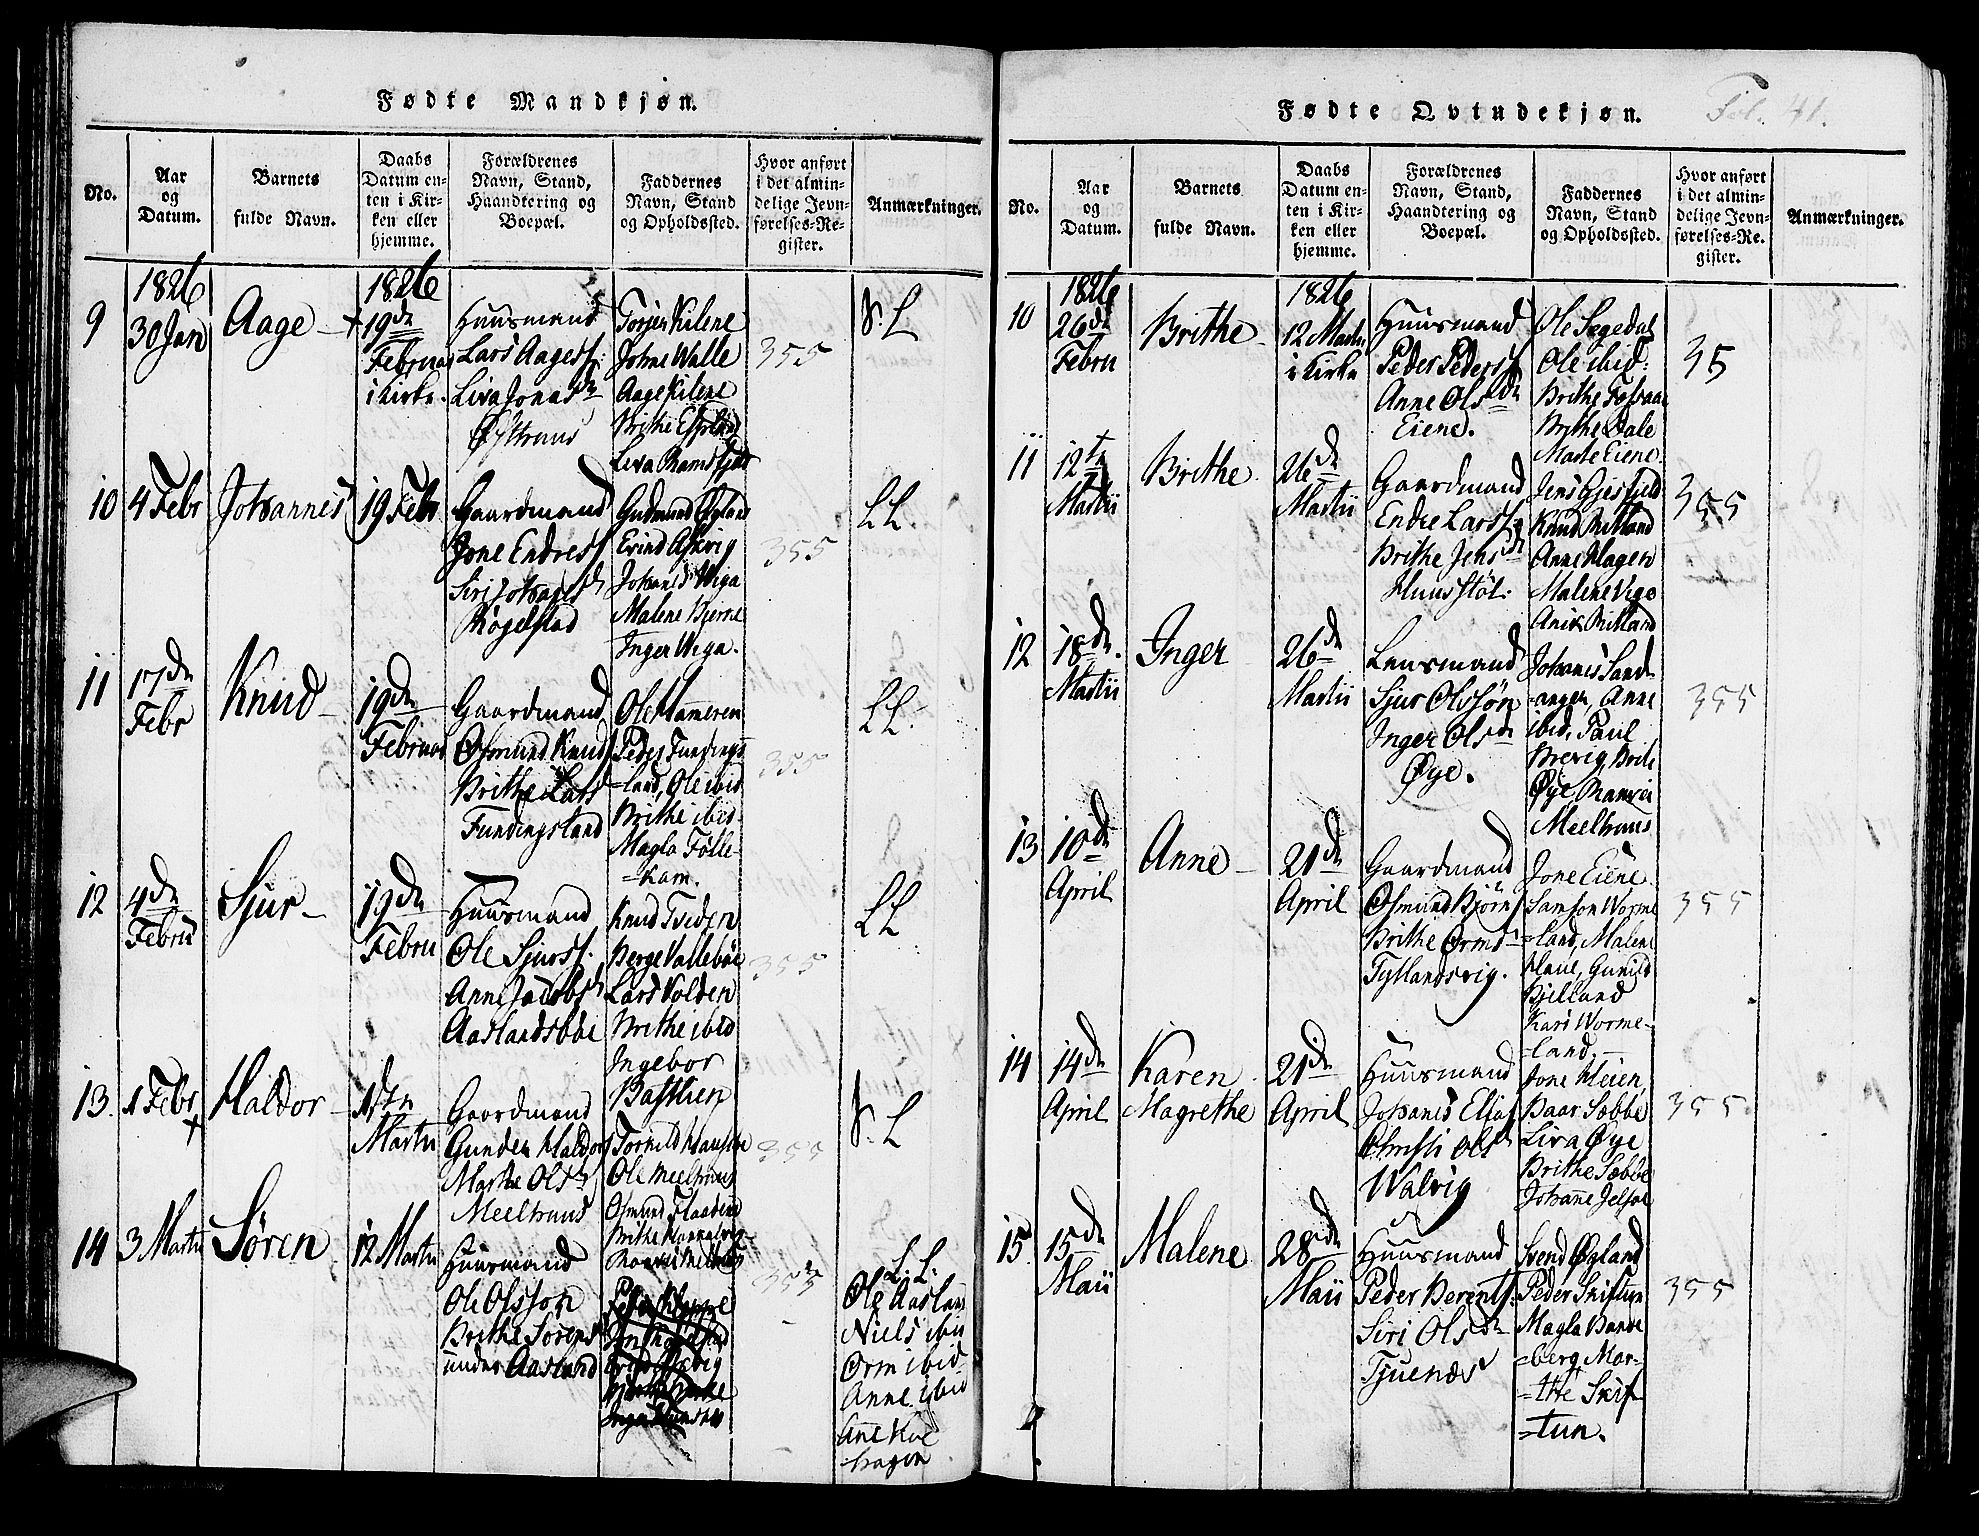 Fødte Mandkjøn.
No.
Aar
og
Datum.
Barnets
fulde Navn.
Daabs
Datum en-
ten i Kir-
ken eller
hjemme.
Forældrenes
Navn, Stand,
Haandtering og
Boepæl.
Faddernes
Navn, Stand
og Opholdssted.
Hvor anført
i det almin-
delige Jevn-
førelses-Re-
gister.
Anmærkninger.
9
1826
30 Jan
Aage
1826
19de
Februar
i Kirke.
Huusmand
Lars Aagess:
Liva Jonasd
Torjer Kilene
Johne Walle
Aage Kilene
Brithe
Liva
355
V. L
10
4 Febr
Johannes
19 Febr
Gaardmand
Jone Endress
Siri Johannesd
Røgelstad
Gudmund Øgland
Erind Askvig
Johannes Wiga
Malene Bjerne
Inger Wiga.
355
LL.
11
17de
Febr
Knud
19de
Februar
Gaardmand
Osmund Knuds
Brithe Larsd
Fundingsland
Ole Hameren
Peder Fundings
=land, Ole ibid
Brithe ibid
Magla Følle-
=kam.
355
LL.
12
4de
Febru
Sjur
19de
Febru
Huusmand
Ole Sjurss.
Anne Jacobsd
Aaslandsbøe
Knud Tveden
Berge Vallebøe
Lars Volden
Brithe ibid
Ingebor
Bastlien
355
LL
13.
1 Febr
Haldor
Martii
Gaardmand
Gunder Haldors
Marthe Olsd
Meeltruus
Ole Meeltruus
Osmund
Brithe
355
V. L
14
3 Martii
Søren
12 Martii
Huusmand
Ole Olsson
Brithe Sørensd
under Aasland
355
L. L.
Ole Aasland
Niels ibid
Orm ibid
Anne ibid
Ane Hve
=hagen
Fødte Qvindekjøn.
Fol. 41.
No.
Aar
og
Datum.
Barnets
fulde Navn.
Daabs
Datum en-
ten i Kir-
ken eller
hjemme.
Forældrenes
Navn, Stand,
Haandtering og
Boepæl.
Faddernes
Navn, Stand
og Opholdssted.
Hvor anført
i det almin-
delige Jevn-
førelses-Re-
gister.
Anmærkninger.
10
1826
26de
Febru
Brithe
1826
12 Martii
i Kirke
Huusmand
Peder Peders
Anne Olsd
Eiene.
Ole Sægedal
Ole ibid:
Brithe
Brithe Dale
Marte Eiene
35
11
12te
Martii
Brithe
26de
Martii
Gaardmand
Endre Larss
Brithe Jensd
Huusstøl:
Jens Gjesfjeld
Knud Mitland
Anne Hagen
Malene Vige
Mitland
355
12
18de
Martii
Inger
26de
Martii
Lensmand
Sjur Olssøn
Inger Olsd
Øye.
Johannes Sand
=anger, Anne
ibid, Paul
Brevig, Brite
Øye,
Meeltruus
355
13
10de
April
Anne
21de
April
Gaardmand
Osmund Bjørns
Brithe Ormsd
Tytlandsvig.
Jone Eiene
Samson Worme
=land, Malene
Haue, Gunild
Hjelland
Kari Worme-
=land.
355
14
14de
April
Karen
Magrethe
21de
April
Huusmand
Johannes Elias
Christi Olsd
Walvig
Jone Heien,
Baar Sæbbe
Liva Øye
Brithe Sæbbe
Johanne Jelsøe
355
15
15de
Maii
Malene
28de
Maii
Huusmand
Peder Berents.
Siri Olsd
Tjuenæs
Svend Øgland
Peder Skiftun
Magla Vande
=berg Mar-
=the Skif
=tun.
355